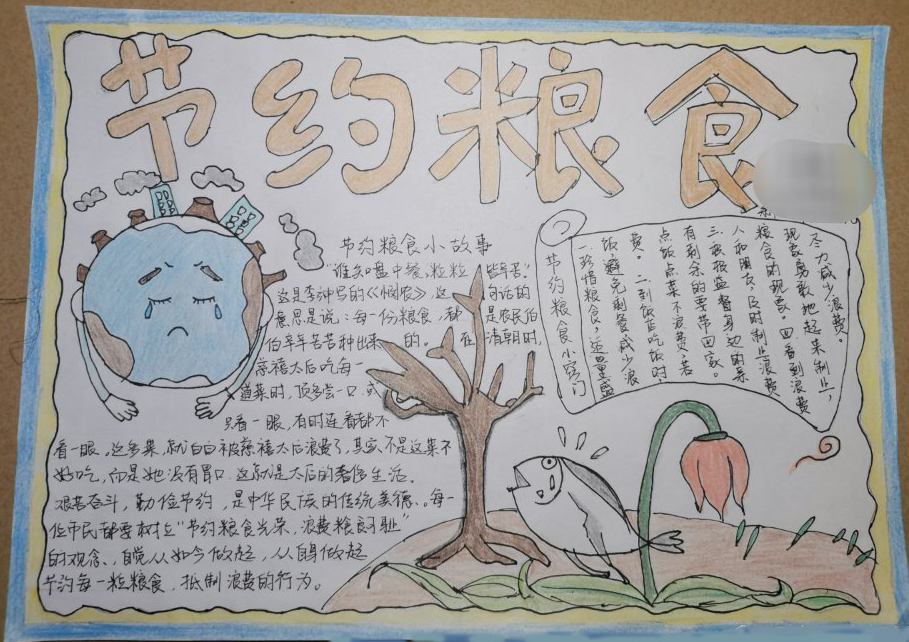 节约粮食
节约粮食小故事
“谁知盘中餐,粒粒皆辛苦”
这是李沖写的《悯农》,这句话的
意思是说:每一份粮食,都是农民伯
伯辛辛苦苦种出来的。在清朝时,
慈禧太后吃每一
道菜时,顶多尝一口,或
只看一眼,有时连看都不
看一眼。这多菜,就白白被慈禧太后浪费了,其实不是这菜不
好吃,而是她没有胃口,这就是太后的奢侈生活。
艰苦奋斗,勤俭节约,是中华民族的传统美德、。每一
位市民都要树立“节约粮食光荣,浪费粮食可耻”
的观念、,自觉从如今做起,从自身做起
节约每一粒粮食,抵制浪费的行为。
节约粮食小窍门
一.珍惜粮食,适量盛
饭,避免剩餐减少浪
费。二.到饭店吃饭时,
点饭点菜不浪费,若
有剩余的要带回家。
三.积极监督身边的亲
人和朋友,及时制止浪费
粮食的现象。四.看到浪费
现象勇敢地起来制止,
尽力减少浪费。